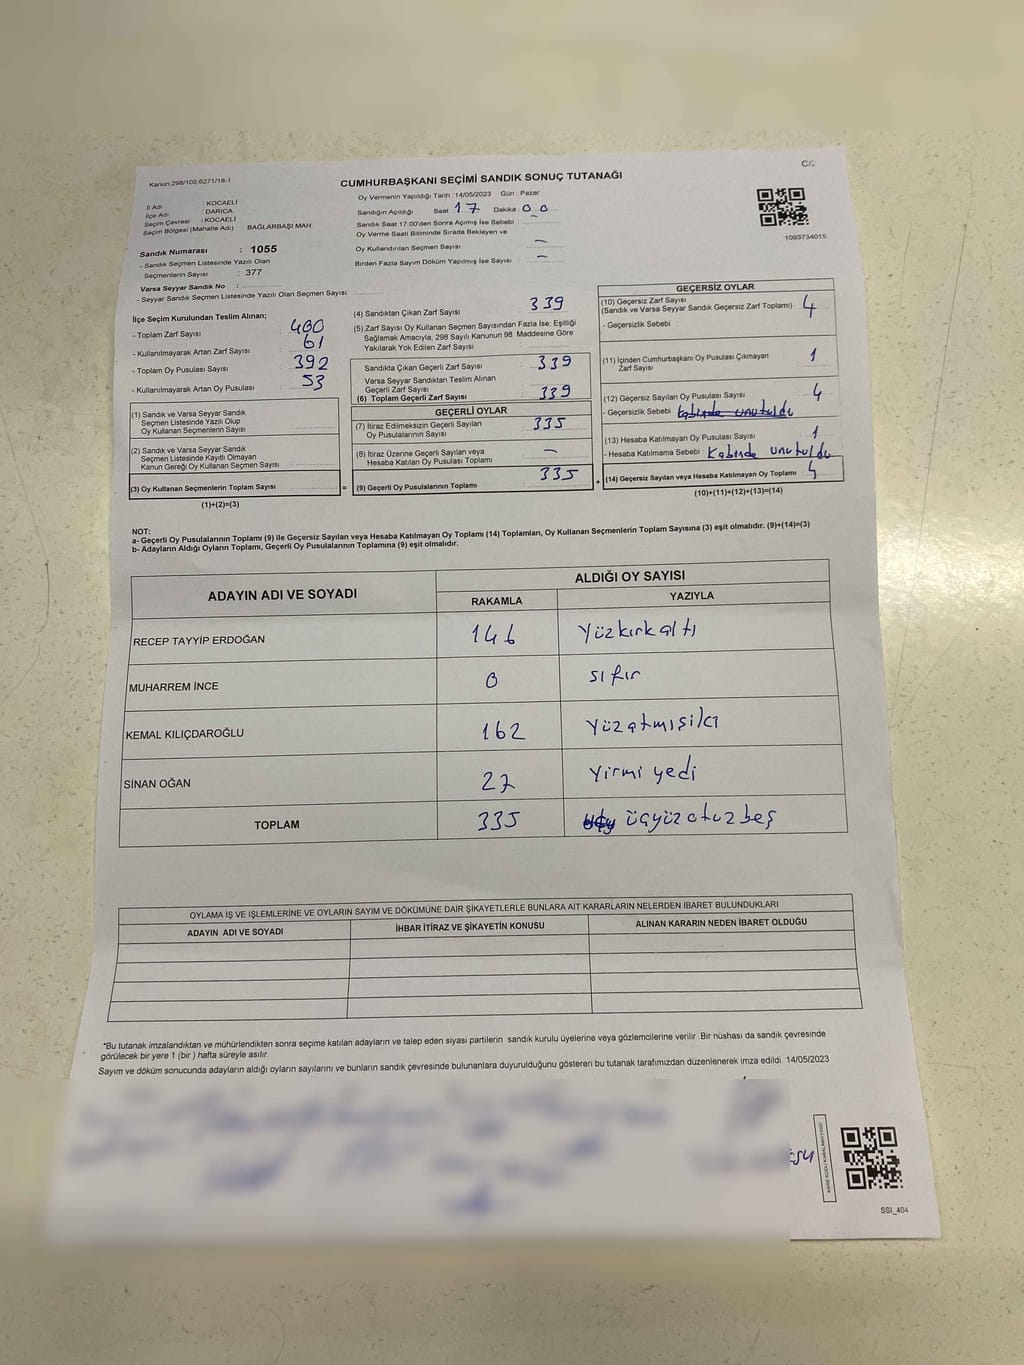 C/2
Kanun:298/105;6271/18-1
CUMHURBAŞKANI SEÇİMİ SANDIK SONUÇ TUTANAĞI
İl Adı : KOCAELİ
İlçe Adı : DARICA
Seçim Çevresi : KOCAELİ
Seçim Bölgesi (Mahalle Adı) : BAĞLARBAŞI MAH
Sandık Numarası : 1055
- Sandık Seçmen Listesinde Yazılı Olan
Seçmenlerin Sayısı : 377
Varsa Seyyar Sandık No :
- Seyyar Sandık Seçmen Listesinde Yazılı Olan Seçmen Sayısı:
Oy Vermenin Yapıldığı Tarih :14/05/2023 Gün : Pazar
Sandığın Açıldığı Saat 17 Dakika 00
Sandık Saat 17:00'den Sonra Açımış İse Sebebi :
Oy Verme Saati Bitiminde Sırada Bekleyen ve
Oy Kullandırılan Seçmen Sayısı : —
Birden Fazla Sayım Döküm Yapılmış İse Sayısı : —
1093734015
İlçe Seçim Kurulundan Teslim Alınan;
- Toplam Zarf Sayısı 400
- Kullanılmayarak Artan Zarf Sayısı 61
- Toplam Oy Pusulası Sayısı 392
- Kullanılmayarak Artan Oy Pusulası 53
(1) Sandık ve Varsa Seyyar Sandık
Seçmen Listesinde Yazılı Olup
Oy Kullanan Seçmenlerin Sayısı
(2) Sandık ve Varsa Seyyar Sandık
Seçmen Listesinde Kaydı Olmayan
Kanun Gereği Oy Kullanan Seçmen Sayısı
(3) Oy Kullanan Seçmenlerin Toplam Sayısı
(1)+(2)=(3)
(4) Sandıktan Çıkan Zarf Sayısı 339
(5) Zarf Sayısı Oy Kullanan Seçmen Sayısından Fazla İse, Eşitliği
Sağlamak Amacıyla; 298 Sayılı Kanunun 98. Maddesine Göre
Yakılarak Yok Edilen Zarf Sayısı
Sandıkta Çıkan Geçerli Zarf Sayısı 339
Varsa Seyyar Sandıktan Teslim Alınan
Geçerli Zarf Sayısı
(6) Toplam Geçerli Zarf Sayısı 339
GEÇERLİ OYLAR
(7) İtiraz Edilmeksizin Geçerli Sayılan
Oy Pusulalarının Sayısı 335
(8) İtiraz Üzerine Geçerli Sayılan veya
Hesaba Katılan Oy Pusulası Toplamı —
= (9) Geçerli Oy Pusulalarının Toplamı 335
GEÇERSİZ OYLAR
(10) Geçersiz Zarf Sayısı
(Sandık ve Varsa Seyyar Sandık Geçersiz Zarf Toplamı) : 4
- Geçersizlik Sebebi :
(11) İçinden Cumhurbaşkanı Oy Pusulası Çıkmayan
Zarf Sayısı 1
(12) Geçersiz Sayılan Oy Pusulası Sayısı 4
- Geçersizlik Sebebi Kabinde unutuldu
(13) Hesaba Katılmayan Oy Pusulası Sayısı 1
- Hesaba Katılmama Sebebi : Kabinde unutuldu
+ (14) Geçersiz Sayılan veya Hesaba Katılmayan Oy Toplamı
(10)+(11)+(12)+(13)=(14)
NOT:
a- Geçerli Oy Pusulalarının Toplamı (9) ile Geçersiz Sayılan veya Hesaba Katılmayan Oy Toplamı (14) Toplamları, Oy Kullanan Seçmenlerin Toplam Sayısına (3) eşit olmalıdır. (9)+(14)=(3)
b- Adayların Aldığı Oyların Toplamı, Geçerli Oy Pusulalarının Toplamına (9) eşit olmalıdır.
ADAYIN ADI VE SOYADI
ALDIĞI OY SAYISI
RAKAMLA YAZIYLA
RECEP TAYYİP ERDOĞAN 146 Yüzkırkaltı
MUHARREM İNCE 0 sıfır
KEMAL KILIÇDAROĞLU 162 Yüzatmışiki
SİNAN OĞAN 27 Yirmi yedi
TOPLAM 335 üçyüzotuzbeş
OYLAMA İŞ VE İŞLEMLERİNE VE OYLARIN SAYIM VE DÖKÜMÜNE DAİR ŞİKAYETLERLE BUNLARA AİT KARARLARIN NELERDEN İBARET BULUNDUKLARI
ADAYIN ADI VE SOYADI İHBAR İTİRAZ VE ŞİKAYETİN KONUSU ALINAN KARARIN NEDEN İBARET OLDUĞU
*Bu tutanak imzalandıktan ve mühürlendikten sonra seçime katılan adayların ve talep eden siyasi partilerin sandık kurulu üyelerine veya gözlemcilerine verilir. Bir nüshası da sandık çevresinde
görülecek bir yere 1 (bir ) hafta süreyle asılır.
Sayım ve döküm sonucunda adayların aldığı oyların sayılarını ve bunların sandık çevresinde bulunanlara duyurulduğunu gösteren bu tutanak tarafımızdan düzenlenerek imza edildi. 14/05/2023
SSI_404